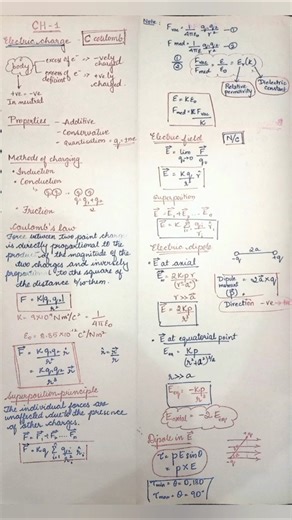 CH-1
Electric charge
C coulomb
body
excess of e⁻ → -vely charged
deficient of e⁻ → +vely charged
+ve = -ve
In neutral
Properties – Additive
– Conservative
– quantisation = q = ±ne
Methods of charging
• Induction
• Conduction
• Friction
Coulomb's law
Force between two point charge
is directly proportional to the
product of the magnitude of the
two charges and inversely
proportional to the square of
the distance b/w them.
F = K|q₁q₂| / r²
K = 9×10⁹ Nm²/C² = 1/4πε₀
ε₀ = 8.85×10⁻¹² C²/Nm²
Superposition principle
The individual forces are
unaffected due to the presence
of other charges.
Note:
①
②
Relative permittivity
Dielectric constant
Electric field
N/C
E = lim q₀→0 F/q₀
E = Kq/r² r̂
Superposition
Electric dipole
• E at axial
E = 2Kpr / (r²-a²)²
r >> a
E = 2Kp / r³
2a
-q
+q
Dipole moment (p) = 2a × q
Direction -ve → +ve
• E at equatorial point
E = -Kp / (r²+a²)^3/2
r >> a
E = -Kp / r³
E axial = -2 E
Dipole in E
τ = pE sinθ
= p × E
τ min = θ = 0, 180
τ max = θ = 90°